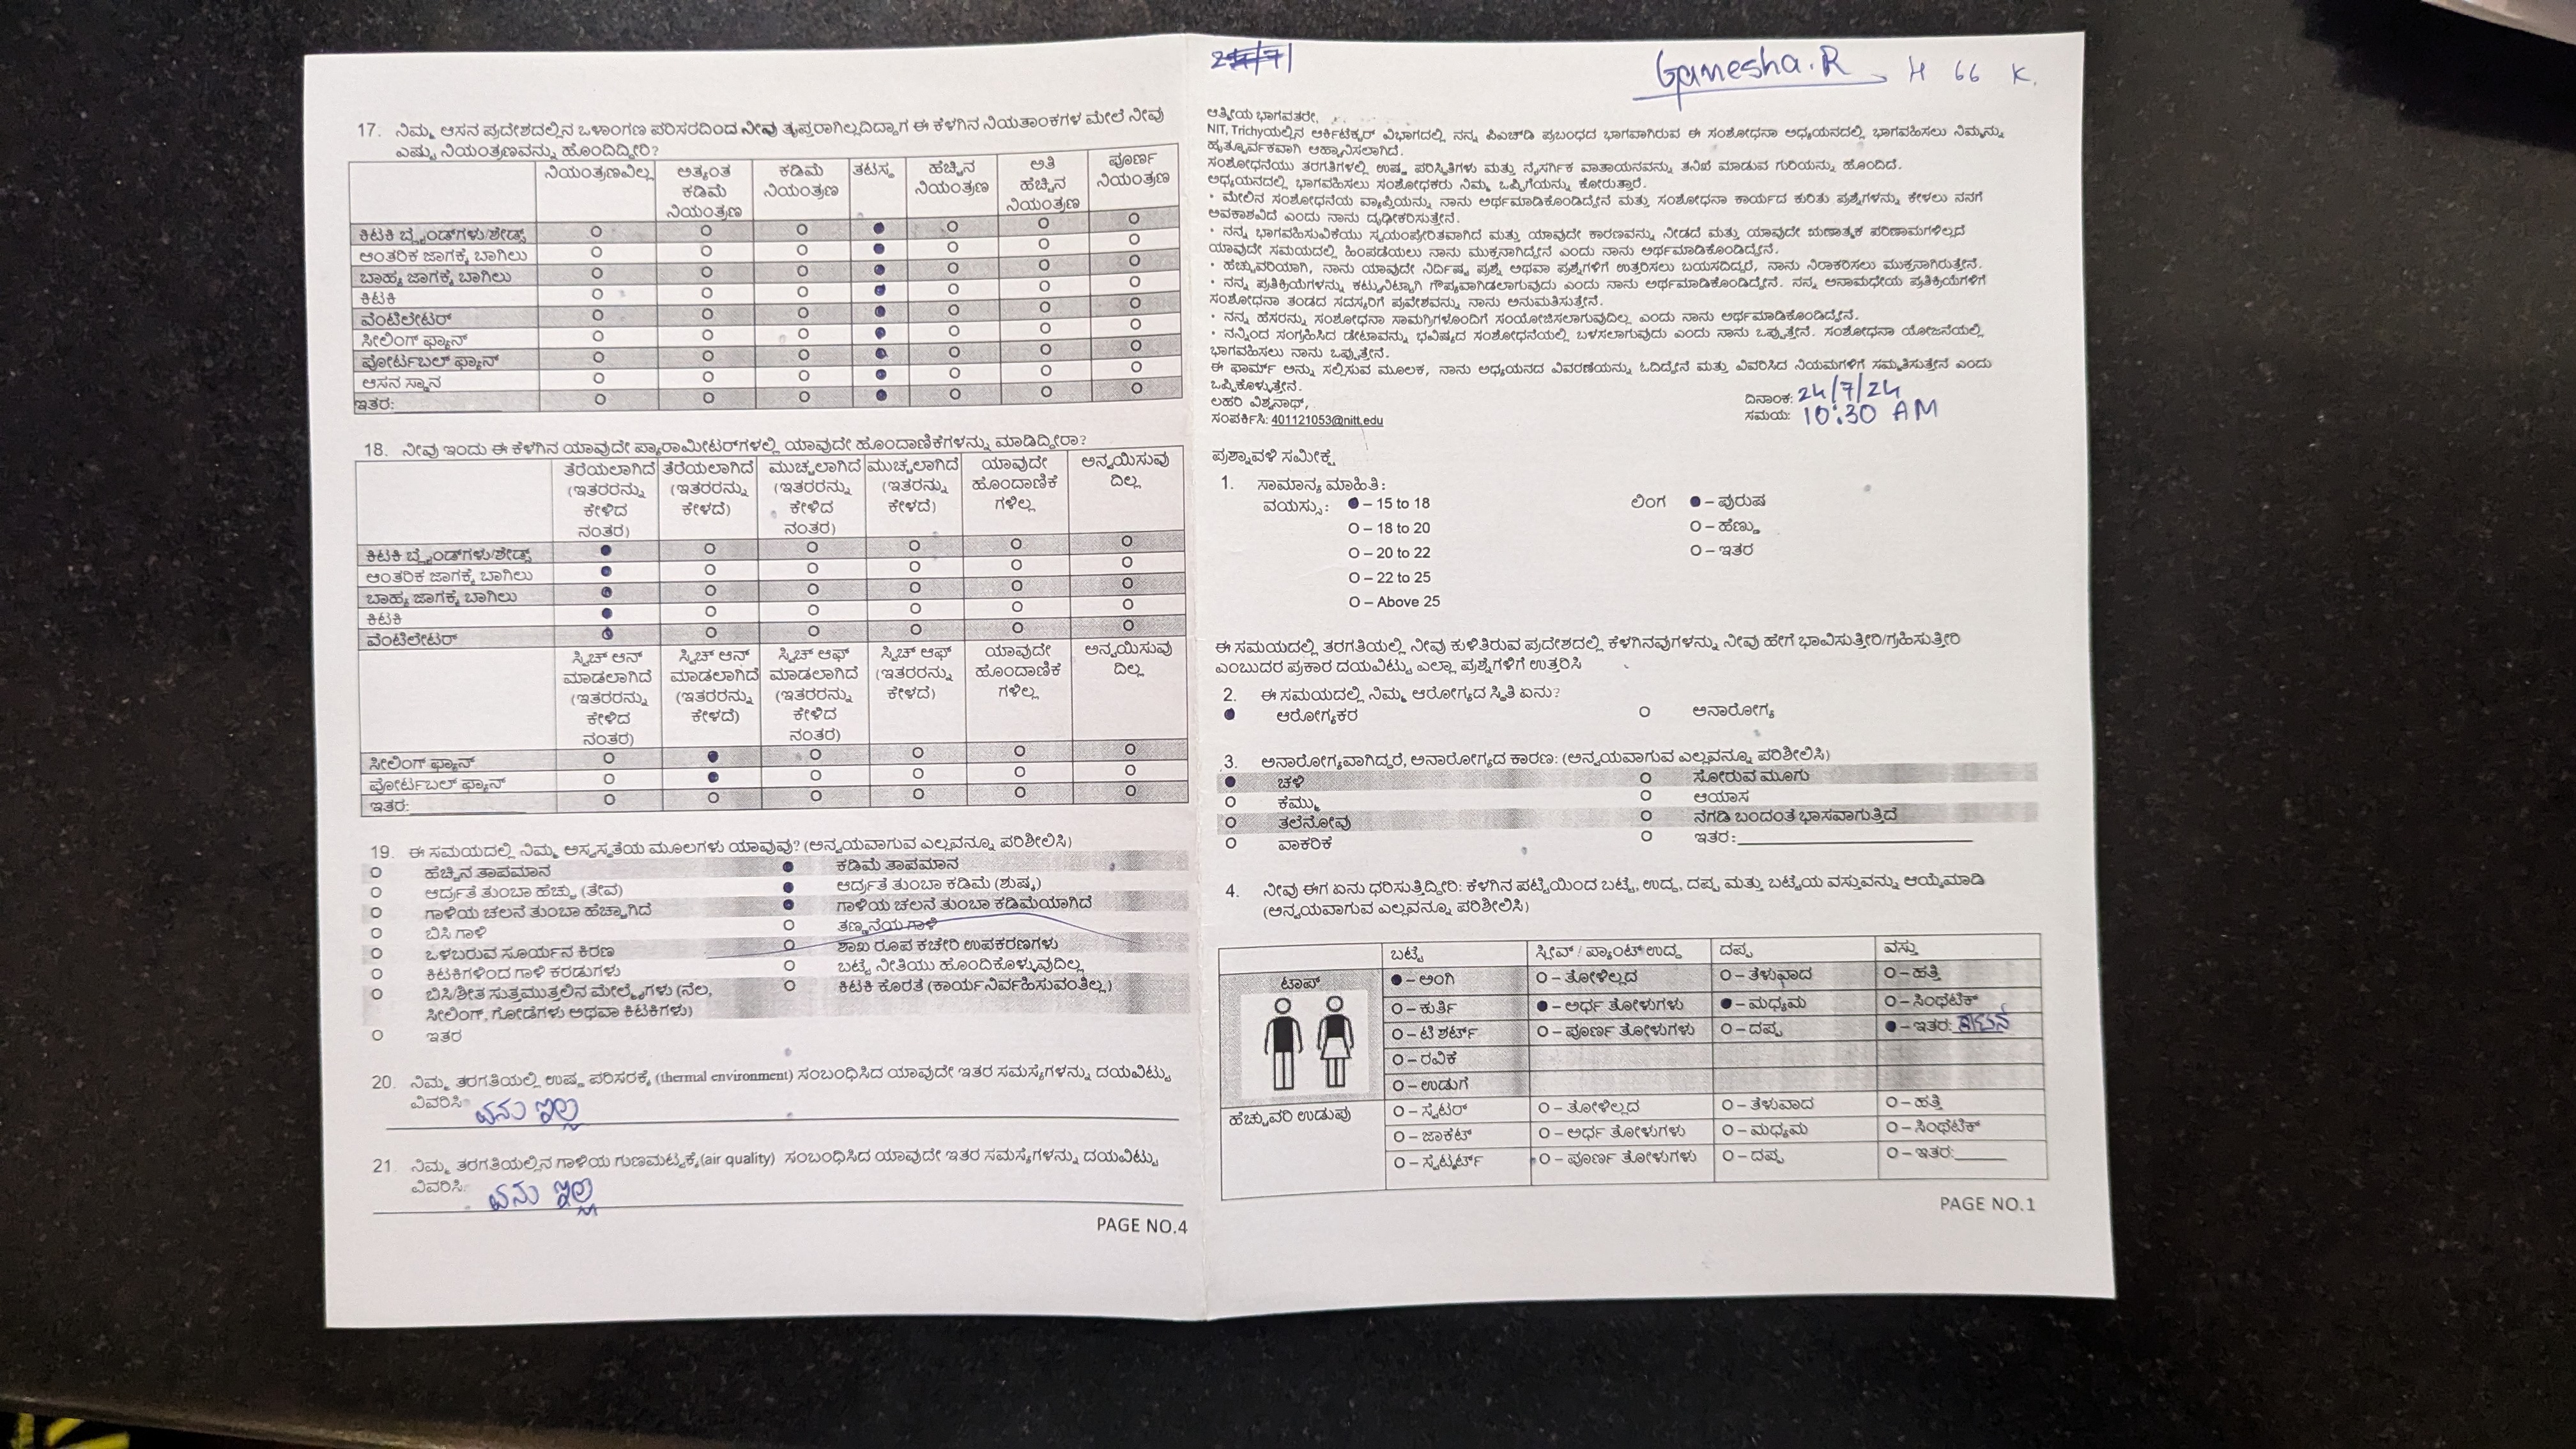 17. ನಿಮ್ಮ ಆಸನ ಪ್ರದೇಶದಲ್ಲಿನ ಒಳಾಂಗಣ ಪರಿಸರದಿಂದ ನೀವು ತೃಪ್ತರಾಗಿಲ್ಲದಿದ್ದಾಗ ಈ ಕೆಳಗಿನ ನಿಯತಾಂಕಗಳ ಮೇಲೆ ನೀವು
ಎಷ್ಟು ನಿಯಂತ್ರಣವನ್ನು ಹೊಂದಿದ್ದೀರಿ?
ನಿಯಂತ್ರಣವಿಲ್ಲ ಅತ್ಯಂತ ಕಡಿಮೆ ನಿಯಂತ್ರಣ ಕಡಿಮೆ ನಿಯಂತ್ರಣ ತಟಸ್ಥ ಹೆಚ್ಚಿನ ನಿಯಂತ್ರಣ ಅತಿ ಹೆಚ್ಚಿನ ನಿಯಂತ್ರಣ ಪೂರ್ಣ ನಿಯಂತ್ರಣ
ಕಿಟಕಿ ಬ್ಲೈಂಡ್‌ಗಳು/ಶೇಡ್ಸ್
ಆಂತರಿಕ ಜಾಗಕ್ಕೆ ಬಾಗಿಲು
ಬಾಹ್ಯ ಜಾಗಕ್ಕೆ ಬಾಗಿಲು
ಕಿಟಕಿ
ವೆಂಟಿಲೇಟರ್
ಸೀಲಿಂಗ್ ಫ್ಯಾನ್
ಪೋರ್ಟಬಲ್ ಫ್ಯಾನ್
ಆಸನ ಸ್ಥಾನ
ಇತರ:
18. ನೀವು ಇಂದು ಈ ಕೆಳಗಿನ ಯಾವುದೇ ಪ್ಯಾರಾಮೀಟರ್‌ಗಳಲ್ಲಿ ಯಾವುದೇ ಹೊಂದಾಣಿಕೆಗಳನ್ನು ಮಾಡಿದ್ದೀರಾ?
ತೆರೆಯಲಾಗಿದೆ (ಇತರರನ್ನು ಕೇಳಿದ ನಂತರ) ತೆರೆಯಲಾಗಿದೆ (ಇತರರನ್ನು ಕೇಳದೆ) ಮುಚ್ಚಲಾಗಿದೆ (ಇತರರನ್ನು ಕೇಳಿದ ನಂತರ) ಮುಚ್ಚಲಾಗಿದೆ (ಇತರರನ್ನು ಕೇಳದೆ) ಯಾವುದೇ ಹೊಂದಾಣಿಕೆ ಗಳಿಲ್ಲ ಅನ್ವಯಿಸುವು ದಿಲ್ಲ
ಕಿಟಕಿ ಬ್ಲೈಂಡ್‌ಗಳು/ಶೇಡ್ಸ್
ಆಂತರಿಕ ಜಾಗಕ್ಕೆ ಬಾಗಿಲು
ಬಾಹ್ಯ ಜಾಗಕ್ಕೆ ಬಾಗಿಲು
ಕಿಟಕಿ
ವೆಂಟಿಲೇಟರ್
ಸ್ವಿಚ್ ಆನ್ ಮಾಡಲಾಗಿದೆ (ಇತರರನ್ನು ಕೇಳಿದ ನಂತರ) ಸ್ವಿಚ್ ಆನ್ ಮಾಡಲಾಗಿದೆ (ಇತರರನ್ನು ಕೇಳದೆ) ಸ್ವಿಚ್ ಆಫ್ ಮಾಡಲಾಗಿದೆ (ಇತರರನ್ನು ಕೇಳಿದ ನಂತರ) ಸ್ವಿಚ್ ಆಫ್ (ಇತರರನ್ನು ಕೇಳದೆ) ಯಾವುದೇ ಹೊಂದಾಣಿಕೆ ಗಳಿಲ್ಲ ಅನ್ವಯಿಸುವು ದಿಲ್ಲ
ಸೀಲಿಂಗ್ ಫ್ಯಾನ್
ಪೋರ್ಟಬಲ್ ಫ್ಯಾನ್
ಇತರ:
19. ಈ ಸಮಯದಲ್ಲಿ ನಿಮ್ಮ ಅಸ್ವಸ್ಥತೆಯ ಮೂಲಗಳು ಯಾವುವು? (ಅನ್ವಯವಾಗುವ ಎಲ್ಲವನ್ನೂ ಪರಿಶೀಲಿಸಿ)
ಹೆಚ್ಚಿನ ತಾಪಮಾನ ಕಡಿಮೆ ತಾಪಮಾನ
ಆರ್ದ್ರತೆ ತುಂಬಾ ಹೆಚ್ಚು (ತೇವ) ಆರ್ದ್ರತೆ ತುಂಬಾ ಕಡಿಮೆ (ಶುಷ್ಕ)
ಗಾಳಿಯ ಚಲನೆ ತುಂಬಾ ಹೆಚ್ಚಾಗಿದೆ ಗಾಳಿಯ ಚಲನೆ ತುಂಬಾ ಕಡಿಮೆಯಾಗಿದೆ
ಬಿಸಿ ಗಾಳಿ ತಣ್ಣನೆಯ ಗಾಳಿ
ಒಳಬರುವ ಸೂರ್ಯನ ಕಿರಣ ಶಾಖ ರೂಪ ಕಚೇರಿ ಉಪಕರಣಗಳು
ಕಿಟಕಿಗಳಿಂದ ಗಾಳಿ ಕರಡುಗಳು ಬಟ್ಟೆ ನೀತಿಯು ಹೊಂದಿಕೊಳ್ಳುವುದಿಲ್ಲ
ಬಿಸಿ/ಶೀತ ಸುತ್ತಮುತ್ತಲಿನ ಮೇಲ್ಮೈಗಳು (ನೆಲ, ಕಿಟಕಿ ಕೊರತೆ (ಕಾರ್ಯನಿರ್ವಹಿಸುವಂತಿಲ್ಲ)
ಸೀಲಿಂಗ್, ಗೋಡೆಗಳು ಅಥವಾ ಕಿಟಕಿಗಳು)
ಇತರ
20. ನಿಮ್ಮ ತರಗತಿಯಲ್ಲಿ ಉಷ್ಣ ಪರಿಸರಕ್ಕೆ (thermal environment) ಸಂಬಂಧಿಸಿದ ಯಾವುದೇ ಇತರ ಸಮಸ್ಯೆಗಳನ್ನು ದಯವಿಟ್ಟು
ವಿವರಿಸಿ: ಏನು ಇಲ್ಲ
21. ನಿಮ್ಮ ತರಗತಿಯಲ್ಲಿನ ಗಾಳಿಯ ಗುಣಮಟ್ಟಕ್ಕೆ(air quality) ಸಂಬಂಧಿಸಿದ ಯಾವುದೇ ಇತರ ಸಮಸ್ಯೆಗಳನ್ನು ದಯವಿಟ್ಟು
ವಿವರಿಸಿ: ಏನು ಇಲ್ಲ
PAGE NO.4
Ganesha.R H 66 K.
ಆತ್ಮೀಯ ಭಾಗವತರೇ,
NIT, Trichyಯಲ್ಲಿನ ಆರ್ಕಿಟೆಕ್ಚರ್ ವಿಭಾಗದಲ್ಲಿ ನನ್ನ ಪಿಎಚ್‌ಡಿ ಪ್ರಬಂಧದ ಭಾಗವಾಗಿರುವ ಈ ಸಂಶೋಧನಾ ಅಧ್ಯಯನದಲ್ಲಿ ಭಾಗವಹಿಸಲು ನಿಮ್ಮನ್ನು
ಹೃತ್ಪೂರ್ವಕವಾಗಿ ಆಹ್ವಾನಿಸಲಾಗಿದೆ.
ಸಂಶೋಧನೆಯು ತರಗತಿಗಳಲ್ಲಿ ಉಷ್ಣ ಪರಿಸ್ಥಿತಿಗಳು ಮತ್ತು ನೈಸರ್ಗಿಕ ವಾತಾಯನವನ್ನು ತನಿಖೆ ಮಾಡುವ ಗುರಿಯನ್ನು ಹೊಂದಿದೆ.
ಅಧ್ಯಯನದಲ್ಲಿ ಭಾಗವಹಿಸಲು ಸಂಶೋಧಕರು ನಿಮ್ಮ ಒಪ್ಪಿಗೆಯನ್ನು ಕೋರುತ್ತಾರೆ.
• ಮೇಲಿನ ಸಂಶೋಧನೆಯ ವ್ಯಾಪ್ತಿಯನ್ನು ನಾನು ಅರ್ಥಮಾಡಿಕೊಂಡಿದ್ದೇನೆ ಮತ್ತು ಸಂಶೋಧನಾ ಕಾರ್ಯದ ಕುರಿತು ಪ್ರಶ್ನೆಗಳನ್ನು ಕೇಳಲು ನನಗೆ
ಅವಕಾಶವಿದೆ ಎಂದು ನಾನು ದೃಢೀಕರಿಸುತ್ತೇನೆ.
• ನನ್ನ ಭಾಗವಹಿಸುವಿಕೆಯು ಸ್ವಯಂಪ್ರೇರಿತವಾಗಿದೆ ಮತ್ತು ಯಾವುದೇ ಕಾರಣವನ್ನು ನೀಡದೆ ಮತ್ತು ಯಾವುದೇ ಋಣಾತ್ಮಕ ಪರಿಣಾಮಗಳಿಲ್ಲದೆ
ಯಾವುದೇ ಸಮಯದಲ್ಲಿ ಹಿಂಪಡೆಯಲು ನಾನು ಮುಕ್ತನಾಗಿದ್ದೇನೆ ಎಂದು ನಾನು ಅರ್ಥಮಾಡಿಕೊಂಡಿದ್ದೇನೆ.
• ಹೆಚ್ಚುವರಿಯಾಗಿ, ನಾನು ಯಾವುದೇ ನಿರ್ದಿಷ್ಟ ಪ್ರಶ್ನೆ ಅಥವಾ ಪ್ರಶ್ನೆಗಳಿಗೆ ಉತ್ತರಿಸಲು ಬಯಸದಿದ್ದರೆ, ನಾನು ನಿರಾಕರಿಸಲು ಮುಕ್ತನಾಗಿರುತ್ತೇನೆ.
• ನನ್ನ ಪ್ರತಿಕ್ರಿಯೆಗಳನ್ನು ಕಟ್ಟುನಿಟ್ಟಾಗಿ ಗೌಪ್ಯವಾಗಿಡಲಾಗುವುದು ಎಂದು ನಾನು ಅರ್ಥಮಾಡಿಕೊಂಡಿದ್ದೇನೆ. ನನ್ನ ಅನಾಮಧೇಯ ಪ್ರತಿಕ್ರಿಯೆಗಳಿಗೆ
ಸಂಶೋಧನಾ ತಂಡದ ಸದಸ್ಯರಿಗೆ ಪ್ರವೇಶವನ್ನು ನಾನು ಅನುಮತಿಸುತ್ತೇನೆ.
• ನನ್ನ ಹೆಸರನ್ನು ಸಂಶೋಧನಾ ಸಾಮಗ್ರಿಗಳೊಂದಿಗೆ ಸಂಯೋಜಿಸಲಾಗುವುದಿಲ್ಲ ಎಂದು ನಾನು ಅರ್ಥಮಾಡಿಕೊಂಡಿದ್ದೇನೆ.
• ನನ್ನಿಂದ ಸಂಗ್ರಹಿಸಿದ ಡೇಟಾವನ್ನು ಭವಿಷ್ಯದ ಸಂಶೋಧನೆಯಲ್ಲಿ ಬಳಸಲಾಗುವುದು ಎಂದು ನಾನು ಒಪ್ಪುತ್ತೇನೆ. ಸಂಶೋಧನಾ ಯೋಜನೆಯಲ್ಲಿ
ಭಾಗವಹಿಸಲು ನಾನು ಒಪ್ಪುತ್ತೇನೆ.
ಈ ಫಾರ್ಮ್ ಅನ್ನು ಸಲ್ಲಿಸುವ ಮೂಲಕ, ನಾನು ಅಧ್ಯಯನದ ವಿವರಣೆಯನ್ನು ಓದಿದ್ದೇನೆ ಮತ್ತು ವಿವರಿಸಿದ ನಿಯಮಗಳಿಗೆ ಸಮ್ಮತಿಸುತ್ತೇನೆ ಎಂದು
ಒಪ್ಪಿಕೊಳ್ಳುತ್ತೇನೆ.
ಲಹರಿ ವಿಶ್ವನಾಥ್, ದಿನಾಂಕ: 24/7/24
ಸಂಪರ್ಕಿಸಿ: 401121053@nitt.edu ಸಮಯ: 10:30 AM
ಪ್ರಶ್ನಾವಳಿ ಸಮೀಕ್ಷೆ
1. ಸಾಮಾನ್ಯ ಮಾಹಿತಿ:
ವಯಸ್ಸು: – 15 to 18 ಲಿಂಗ – ಪುರುಷ
O – 18 to 20 O – ಹೆಣ್ಣು
O – 20 to 22 O – ಇತರ
O – 22 to 25
O – Above 25
ಈ ಸಮಯದಲ್ಲಿ ತರಗತಿಯಲ್ಲಿ ನೀವು ಕುಳಿತಿರುವ ಪ್ರದೇಶದಲ್ಲಿ ಕೆಳಗಿನವುಗಳನ್ನು ನೀವು ಹೇಗೆ ಭಾವಿಸುತ್ತೀರಿ/ಗ್ರಹಿಸುತ್ತೀರಿ
ಎಂಬುದರ ಪ್ರಕಾರ ದಯವಿಟ್ಟು ಎಲ್ಲಾ ಪ್ರಶ್ನೆಗಳಿಗೆ ಉತ್ತರಿಸಿ
2. ಈ ಸಮಯದಲ್ಲಿ ನಿಮ್ಮ ಆರೋಗ್ಯದ ಸ್ಥಿತಿ ಏನು?
ಆರೋಗ್ಯಕರ O ಅನಾರೋಗ್ಯ
3. ಅನಾರೋಗ್ಯವಾಗಿದ್ದರೆ, ಅನಾರೋಗ್ಯದ ಕಾರಣ: (ಅನ್ವಯವಾಗುವ ಎಲ್ಲವನ್ನೂ ಪರಿಶೀಲಿಸಿ)
ಚಳಿ O ಸೋರುವ ಮೂಗು
O ಕೆಮ್ಮು O ಆಯಾಸ
O ತಲೆನೋವು O ನೆಗಡಿ ಬಂದಂತೆ ಭಾಸವಾಗುತ್ತಿದೆ
O ವಾಕರಿಕೆ O ಇತರ:
4. ನೀವು ಈಗ ಏನು ಧರಿಸುತ್ತಿದ್ದೀರಿ: ಕೆಳಗಿನ ಪಟ್ಟಿಯಿಂದ ಬಟ್ಟೆ, ಉದ್ದ, ದಪ್ಪ ಮತ್ತು ಬಟ್ಟೆಯ ವಸ್ತುವನ್ನು ಆಯ್ಕೆಮಾಡಿ
(ಅನ್ವಯವಾಗುವ ಎಲ್ಲವನ್ನೂ ಪರಿಶೀಲಿಸಿ)
ಬಟ್ಟೆ ಸ್ಲೀವ್ / ಪ್ಯಾಂಟ್ ಉದ್ದ ದಪ್ಪ ವಸ್ತು
ಟಾಪ್ – ಅಂಗಿ O – ತೋಳಿಲ್ಲದ O – ತೆಳುವಾದ O – ಹತ್ತಿ
O – ಕುರ್ತಿ – ಅರ್ಧ ತೋಳುಗಳು – ಮಧ್ಯಮ O – ಸಿಂಥೆಟಿಕ್
O – ಟಿ ಶರ್ಟ್ O – ಪೂರ್ಣ ತೋಳುಗಳು O – ದಪ್ಪ – ಇತರ:
O – ರವಿಕೆ
O – ಉಡುಗೆ
ಹೆಚ್ಚುವರಿ ಉಡುಪು O – ಸ್ವೆಟರ್ O – ತೋಳಿಲ್ಲದ O – ತೆಳುವಾದ O – ಹತ್ತಿ
O – ಜಾಕೆಟ್ O – ಅರ್ಧ ತೋಳುಗಳು O – ಮಧ್ಯಮ O – ಸಿಂಥೆಟಿಕ್
O – ಸ್ವೆಟ್ಶರ್ಟ್ O – ಪೂರ್ಣ ತೋಳುಗಳು O – ದಪ್ಪ O – ಇತರ:
PAGE NO.1